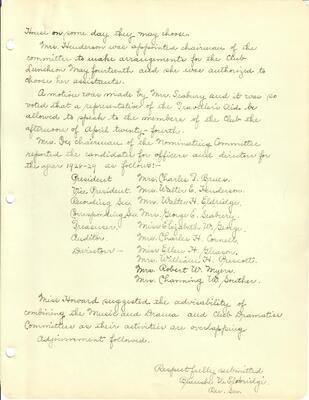 House on some day they may choose.
Mrs. Henderson was appointed chairman of the
committee to make arrangements for the Club
Luncheon May fourteenth and she was authorized to
choose her assistants.
A motion was made by Mrs. Seabury and it was so
voted that a representative of the Travelers Aid be
allowed to speak to the members of the Club the
afternoon of April twenty-fourth.
Mrs. chairman of the Nominating Committee
reported the candidates for officers and directors for
the year 1928-29 as follows:-
President Mrs. Charles T. Bruce.
Vice President Mrs. Walter E. Henderson.
Recording Sec. Mrs. Walter H. Eldridge.
Corresponding Sec Mrs. George E. Seabury.
Treasurer Miss Elizabeth W.
Auditor. Mrs. Charles H. Connell
Directors — Miss Ellen H. Gleason,
Mrs. William H. Prescott.
Mrs. Robert W. Myers.
Mrs. Channing W. Souther.
Miss Howard suggested the advisability of
combining the Music and Drama and Club Dramatics
Committee as their activities are overlapping
Adjournment followed.
Respectfully submitted
Eldridge.
Rec. Sec.